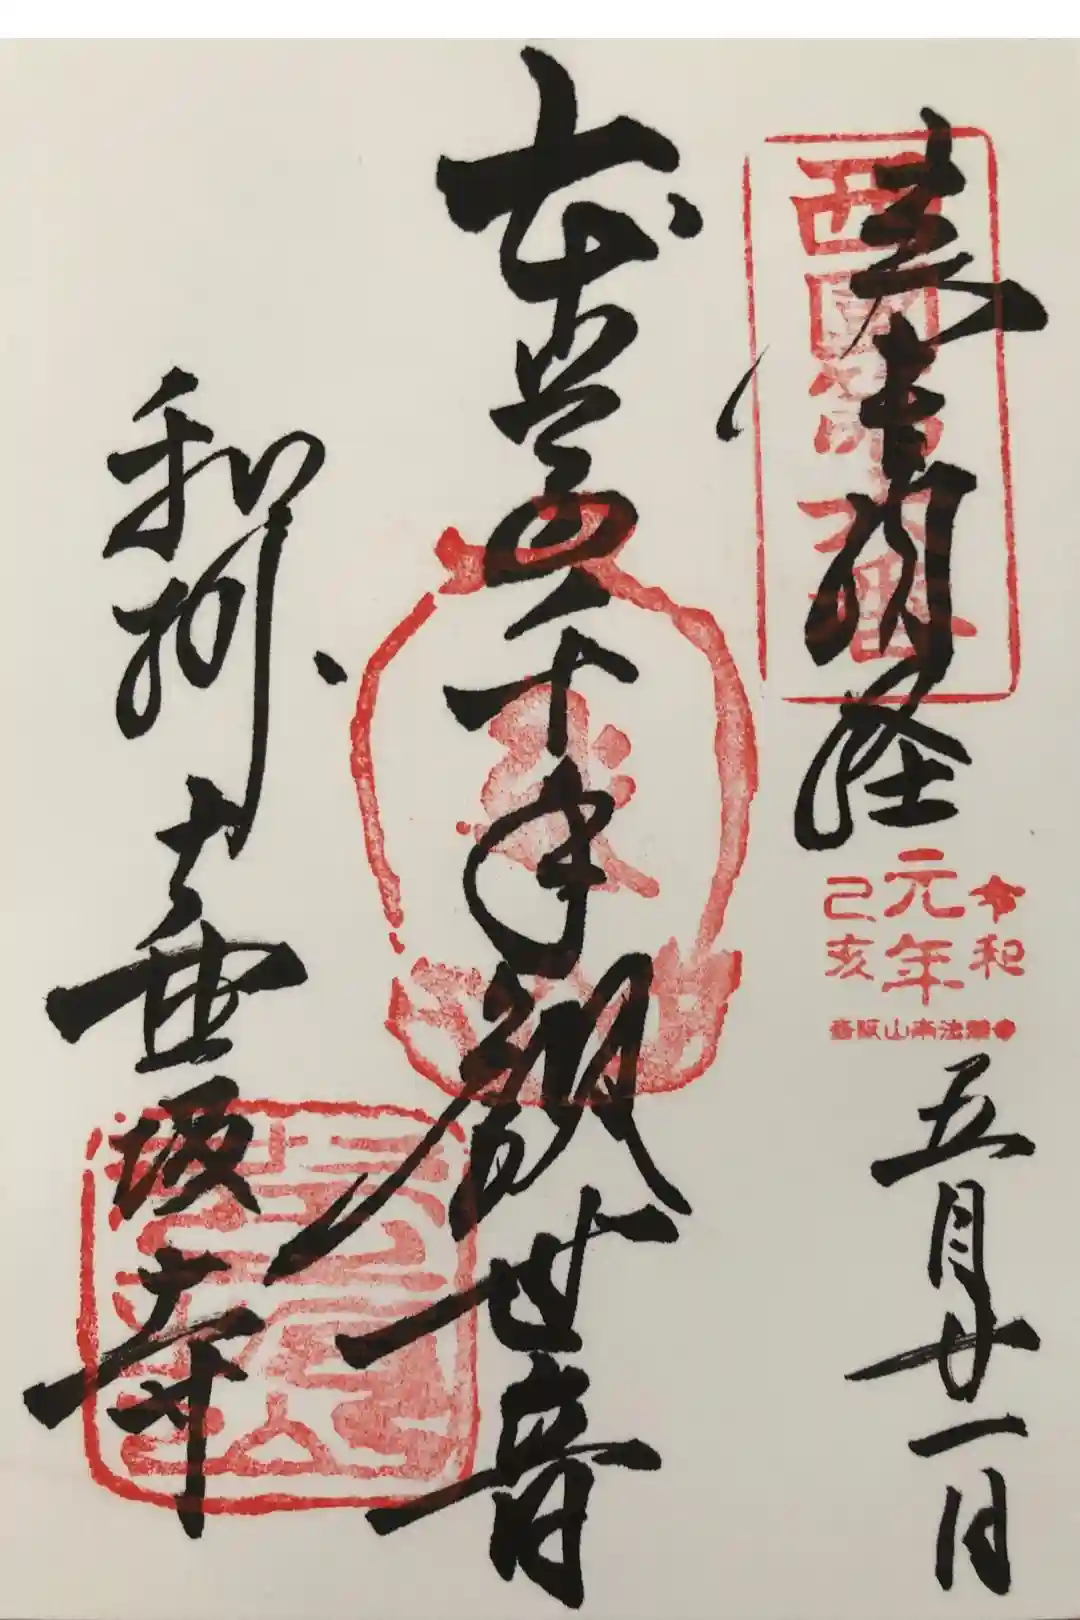 奉納経
西国第六番
令和
元年
己亥
壺阪山南法華
五月廿一日
本尊千手観世音
和州壷坂寺